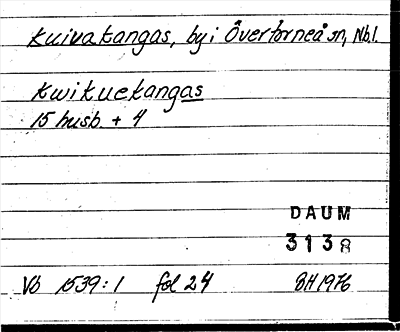 Kuivakangas, by i Övertorneå sn, Nbl.
Kwikuekangas
15 husb. + 4
DAUM
3138
Vb 1539:1 fol 24 BH 1976